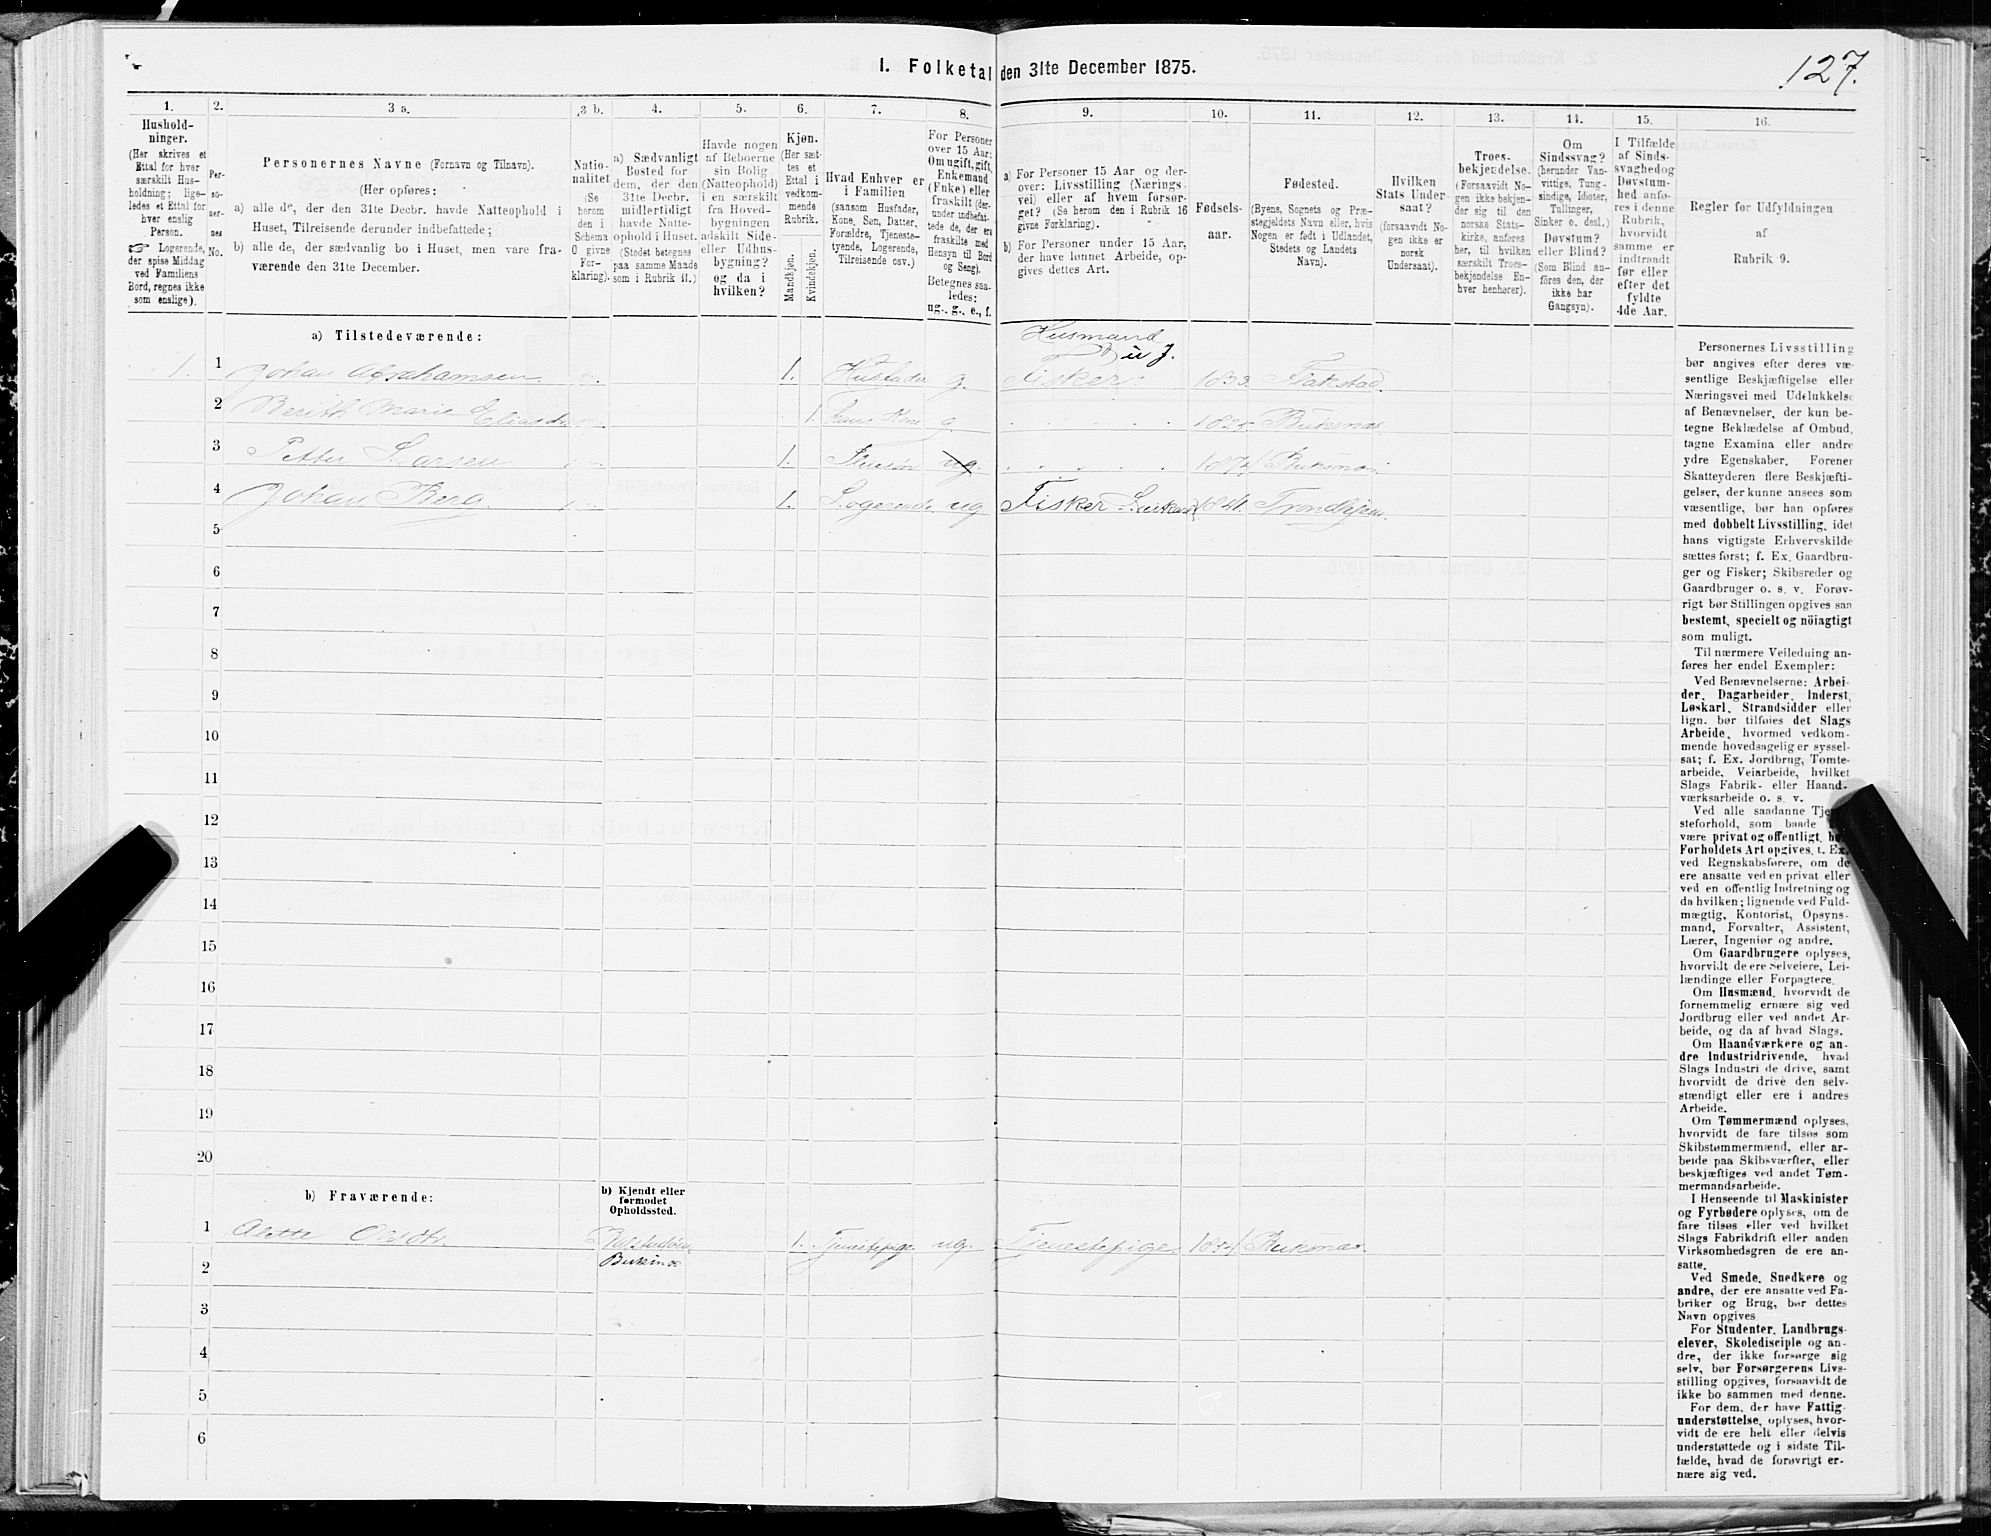 127.
1. Folketal den 31te December 1875.
1. 2. 3 a. 3 b. 4. 5. 6. 7. 8. 9. 10. 11. 12. 13. 14. 15. 16.
Hushold-
ninger.
(Her skrives et
Ettal for hver
særskilt Hus-
holdning; lige-
ledes et Ettal for
hver enslig
Person.
☞ Logerende,
der spise Middag
ved Familiens
Bord, regnes ikke
som enslige).
Per-
so-
ner-
nes
No.
Personernes Navne (Fornavn og Tilnavn).
(Her opføres:
a) alle de, der den 31te Decbr. havde Natteophold i
Huset, Tilreisende derunder indbefattede;
b) alle de, der sædvanlig bo i Huset, men vare fra-
værende den 31te December.
Natio-
nalitet
(Se
herom
den i
Schema
O givne
For-
klaring).
a) Sædvanligt
Bosted for
dem, der den
31te Decbr.
midlertidigt
havde Natte-
ophold i Huset.
(Stedet betegnes
paa samme Maade
som i Rubrik 11.)
Havde nogen
af Beboerne
sin Bolig
(Natteophold)
i en særskilt
fra Hoved-
bygningen
adskilt Side-
eller Udhus-
bygning?
og da i
hvilken?
Kjøn.
(Her sæt-
tes et
Ettal i
vedkom-
mende
Rubrik.
Mandkjøn.
Kvindekjøn.
Hvad Enhver er
i Familien
(saasom Husfader,
Kone, Søn, Datter,
Forældre, Tjeneste-
tyende, Logerende,
Tilreisende osv.)
For Personer
over 15 Aar:
Om ugift, gift,
Enkemand
(Enke) eller
fraskilt (der-
under indbefat-
tede de, der ere
fraskilte med
Hensyn til Bord
og Seng).
Betegnes saa-
ledes:
ug., g., e., f.
a) For Personer 15 Aar og der-
over: Livsstilling (Nærings-
vei) eller af hvem forsør-
get? (Se herom den i Rubrik 16
givne Forklaring).
b) For Personer under 15 Aar,
der have lønnet Arbeide, op-
gives dettes Art.
Fødsels-
aar.
Fødested.
(Byens, Sognets og Præ-
stegjeldets Navn eller, hvis
Nogen er født i Udlandet,
Stedets og Landets
Navn).
Hvilken
Stats Under-
saat?
(forsaavidt No-
gen ikke er
norsk
Undersaat).
Troes-
bekjendelse.
(Forsaavidt No-
gen ikke bekjen-
der sig til den
norske Stats-
kirke, anføres
her, til hvilken
særskilt Troes-
bekjendelse En-
hver henhører).
Om
Sindssvag?
(herunder Van-
vittige, Tung-
sindige, Idioter,
Tullinger,
Sinker o. desl.)
Døvstum?
eller Blind?
(Som Blind an-
føres den, der
ikke har
Gangsyn).
I Tilfælde
af Sinds-
svaghed og
Døvstum-
hed anfø-
res i denne
Rubrik,
hvorvidt
samme er
indtraadt
før eller
efter det
fyldte
4de Aar.
Regler for Udfyldningen
af
Rubrik 9.
a) Tilstedeværende:
Husmand
u J.
1. 1 Johan Abrahamsen 1. Husfader g. Fisker. 1833. Flakstad
2 Berith Marie 1 hans Kone g. Buksnæs
3 Petter Larsen 1. ug. 1874 Buksnæs
4 Johan Berg 1. Logerende ug Fisker 1841. Trondhjem
5
6
7
8
9
10
11
12
13
14
15
16
17
18
19
20
b) Fraværende:
b) Kjendt eller
formodet
Opholdssted.
1 1. Tjenestepige. ug. Tjenestepige. 1854 Buksnæs.
Buksnæs
2
3
4
5
6
Personernes Livsstilling
bør angives efter deres væ-
sentlige Beskjæftigelse eller
Næringsvei med Udelukkelse
af Benævnelser, der kun be-
tegne Beklædelse af Ombud,
tagne Examina eller andre
ydre Egenskaber. Forener
Skatteyderen flere Beskjæfti-
gelser, der kunne ansees som
væsentlige, bør han opføres
med dobbelt Livsstilling, idet
hans vigtigste Erhvervskilde
sættes først; f. Ex. Gaardbru-
ger og Fisker; Skibsreder og
Gaardbruger o. s. v. Forøv-
rigt bør Stillingen opgives saa
bestemt, specielt og nöiagtigt
som muligt.
Til nærmere Veiledning an-
føres her endel Exempler:
Ved Benævnelserne: Arbei-
der, Dagarbeider, Inderst,
Løskarl, Strandsidder eller
lign. bør tilføies det Slags
Arbeide, hvormed vedkom-
mende hovedsagelig er syssel-
sat; f. Ex. Jordbrug, Tomte-
arbeide, Veiarbeide, hvilket
Slags Fabrik- eller Haand-
værksarbeide o. s. v.
Ved alle saadanne Tje
steforhold, som baade
være privat og offentligt, bør
Forholdets Art opgives, t. Ex.
ved Regnskabsførere, om de
ere ansatte ved en privat eller
ved en offentlig Indretning og
da hvilken; lignende ved Fuld-
mægtig, Kontorist, Opsyns-
mand, Forvalter, Assistent,
Lærer, Ingeniør og andre.
Om Gaardbrugere oplyses,
hvorvidt de ere Selveiere, Lei-
lændinge eller Forpagtere.
Om Husmænd, hvorvidt de
fornemmelig ernære sig ved
Jordbrug eller ved andet Ar-
beide, og da af hvad Slags.
Om Haandværkere og an-
dre Industridrivende, hvad
Slags Industri de drive, samt
hvorvidt de drive den selv-
stændigt eller ere i andres
Arbeide.
Om Tømmermænd oplyses,
hvorvidt de fare tilsøs som
Skibstømmermænd, eller ar-
beide paa Skibsværfter, eller
beskjæftiges ved andet Tøm-
mermandsarbeide.
I Henseende til Maskinister
og Fyrbødere oplyses, om de
fare tilsøs eller ved hvilket
Slags Fabrikdrift eller anden
Virksomhedsgren de ere an-
satte.
Ved Smede, Snedkere og
andre, der ere ansatte ved Fa-
briker og Brug, bør dettes
Navn opgives
For Studenter, Landbrugs-
elever, Skoledisciple og an-
dre, der ikke forsørge sig
selv, bør Forsørgerens Livs-
stilling opgives, forsaavidt de
ikke bo sammen med denne.
For dem, der have Fattig-
understøttelse, oplyses, hvor-
vidt de ere helt eller delvis
understøttede og i sidste Til-
fælde, hvad de forøvrigt er-
nære sig ved.